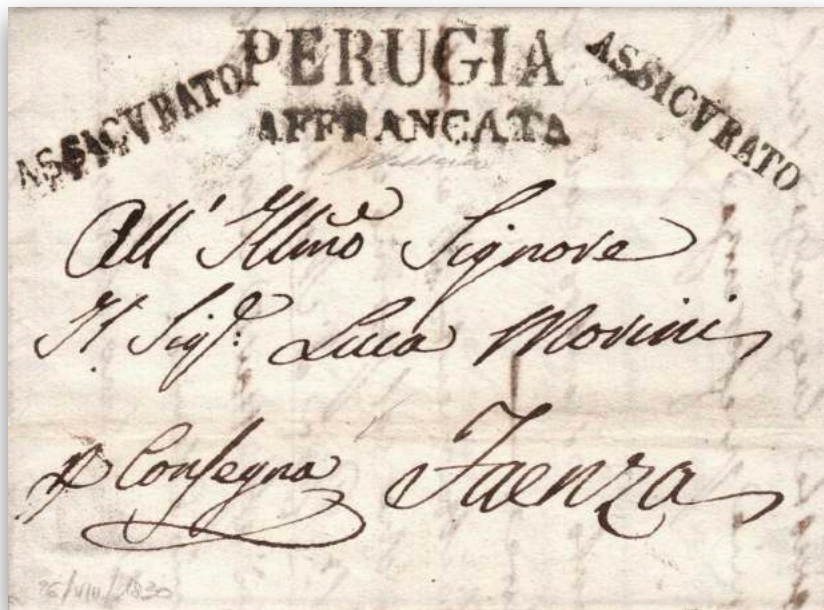 PERUGIA
ASSICVRATO
ASSICVRATO
AFFRANCATA
All' Illmo Signore
Il Sigr. Luca Morini
p Consegna Faenza
/VIII/1830